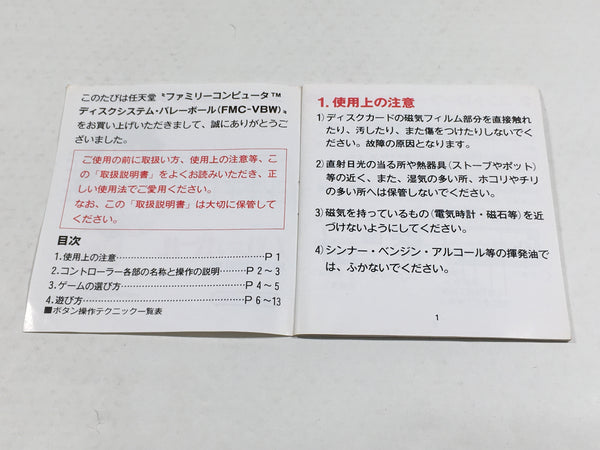 このたびは任天堂〝ファミリーコンピュータ™
ディスクシステム・バレーボール(FMC-VBW)〟
をお買い上げいただきまして、誠にありがとうご
ざいました。
ご使用の前に取扱い方、使用上の注意等、こ
の「取扱説明書」をよくお読みいただき、正
しい使用法でご愛用ください。
なお、この「取扱説明書」は大切に保管して
ください。
目次
1.使用上の注意……………………………P 1
2.コントローラー各部の名称と操作の説明……P 2〜3
3.ゲームの選び方…………………………P 4〜5
4.遊び方……………………………………P 6〜13
■ボタン操作テクニック一覧表
1.使用上の注意
1)ディスクカードの磁気フィルム部分を直接触れ
たり、汚したり、また傷をつけたりしないでく
ださい。故障の原因となります。
2)直射日光の当る所や熱器具(ストーブやポット)
等の近く、また、湿気の多い所、ホコリやチリ
の多い所へは保管しないでください。
3)磁気を持っているもの(電気時計・磁石等)を近
づけないようにしてください。
4)シンナー・ベンジン・アルコール等の揮発油で
は、ふかないでください。
1